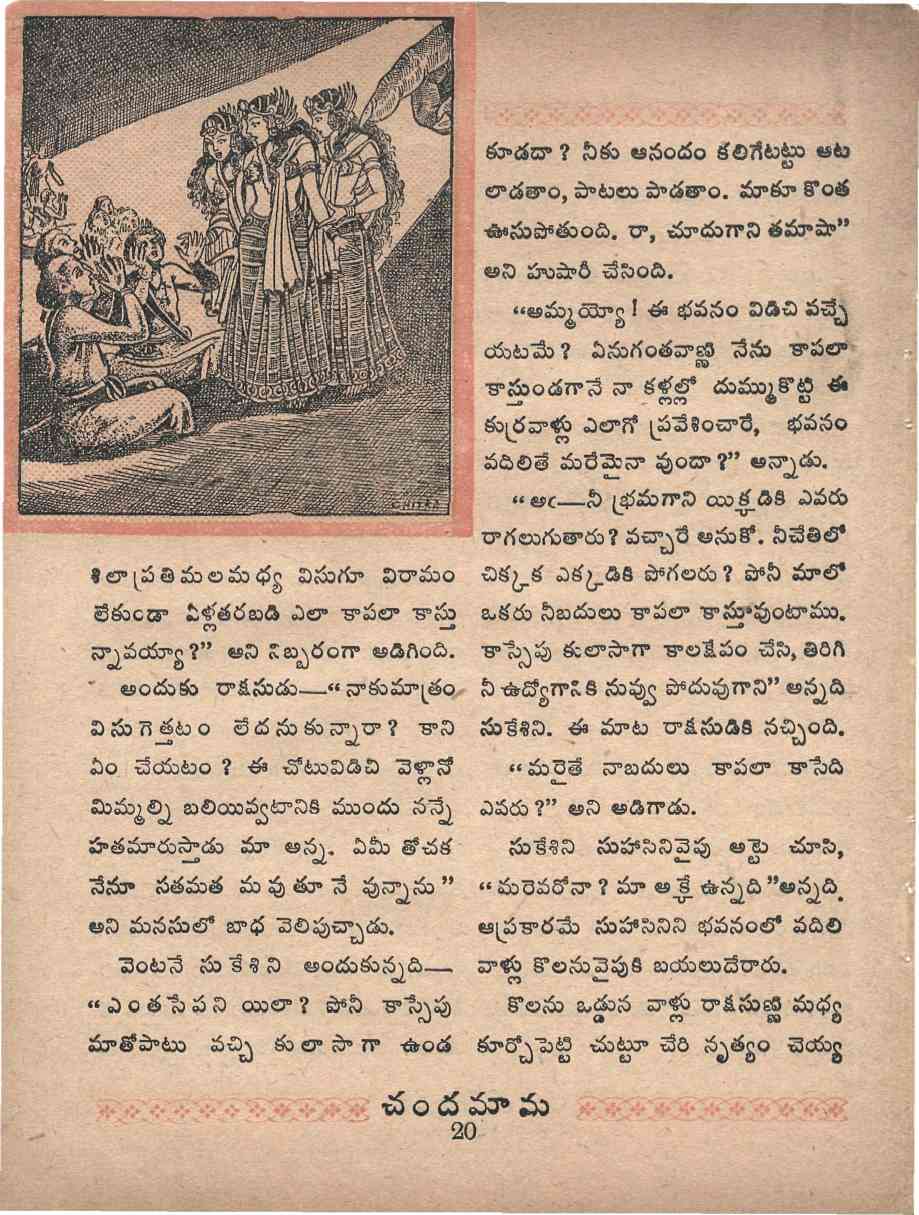 శిలాప్రతిమలమధ్య విసుగూ విరామం
లేకుండా ఏళ్లతరబడి ఎలా కాపలా కాస్తు
న్నావయ్యా?” అని నిబ్బరంగా అడిగింది.
అందుకు రాక్షసుడు—“నాకుమాత్రం
విసుగెత్తటం లేదనుకున్నారా? కాని
ఏం చేయటం? ఈ చోటువిడిచి వెళ్లానో
మిమ్మల్ని బలియివ్వటానికి ముందు నన్నే
హతమారుస్తాడు మా అన్న. ఏమీ తోచక
నేనూ సతమత మవుతూనే వున్నాను”
అని మనసులో బాధ వెలిపుచ్చాడు.
వెంటనే సుకేశిని అందుకున్నది—
“ఎంతసేపని యిలా? పోనీ కాస్సేపు
మాతోపాటు వచ్చి కులాసాగా ఉండ
కూడదా? నీకు ఆనందం కలిగేటట్టు ఆట
లాడతాం, పాటలు పాడతాం. మాకూ కొంత
ఊసుపోతుంది. రా, చూదుగాని తమాషా”
అని హుషారీ చేసింది.
“అమ్మయ్యో! ఈ భవనం విడిచి వచ్చే
యటమే? ఏనుగంతవాణ్ణి నేను కాపలా
కాస్తుండగానే నా కళ్లల్లో దుమ్ముకొట్టి ఈ
కుర్రవాళ్లు ఎలాగో ప్రవేశించారే, భవనం
వదిలితే మరేమైనా వుందా?” అన్నాడు.
“ఆఁ—నీ భ్రమగాని యిక్కడికి ఎవరు
రాగలుగుతారు? వచ్చారే అనుకో. నీచేతిలో
చిక్కక ఎక్కడికి పోగలరు? పోనీ మాలో
ఒకరు నీబదులు కాపలా కాస్తూవుంటాము.
కాస్సేపు కులాసాగా కాలక్షేపం చేసి, తిరిగి
నీ ఉద్యోగానికి నువ్వు పోదువుగాని” అన్నది
సుకేశిని. ఈ మాట రాక్షసుడికి నచ్చింది.
“మరైతే నాబదులు కాపలా కాసేది
ఎవరు?” అని అడిగాడు.
సుకేశిని సుహాసినివైపు అట్టె చూసి,
“మరెవరోనా? మా అక్కే ఉన్నది” అన్నది.
ఆప్రకారమే సుహాసినిని భవనంలో వదిలి
వాళ్లు కొలనువైపుకి బయలుదేరారు.
కొలను ఒడ్డున వాళ్లు రాక్షసుణ్ణి మధ్య
కూర్చోపెట్టి చుట్టూ చేరి నృత్యం చెయ్య
చందమామ
20